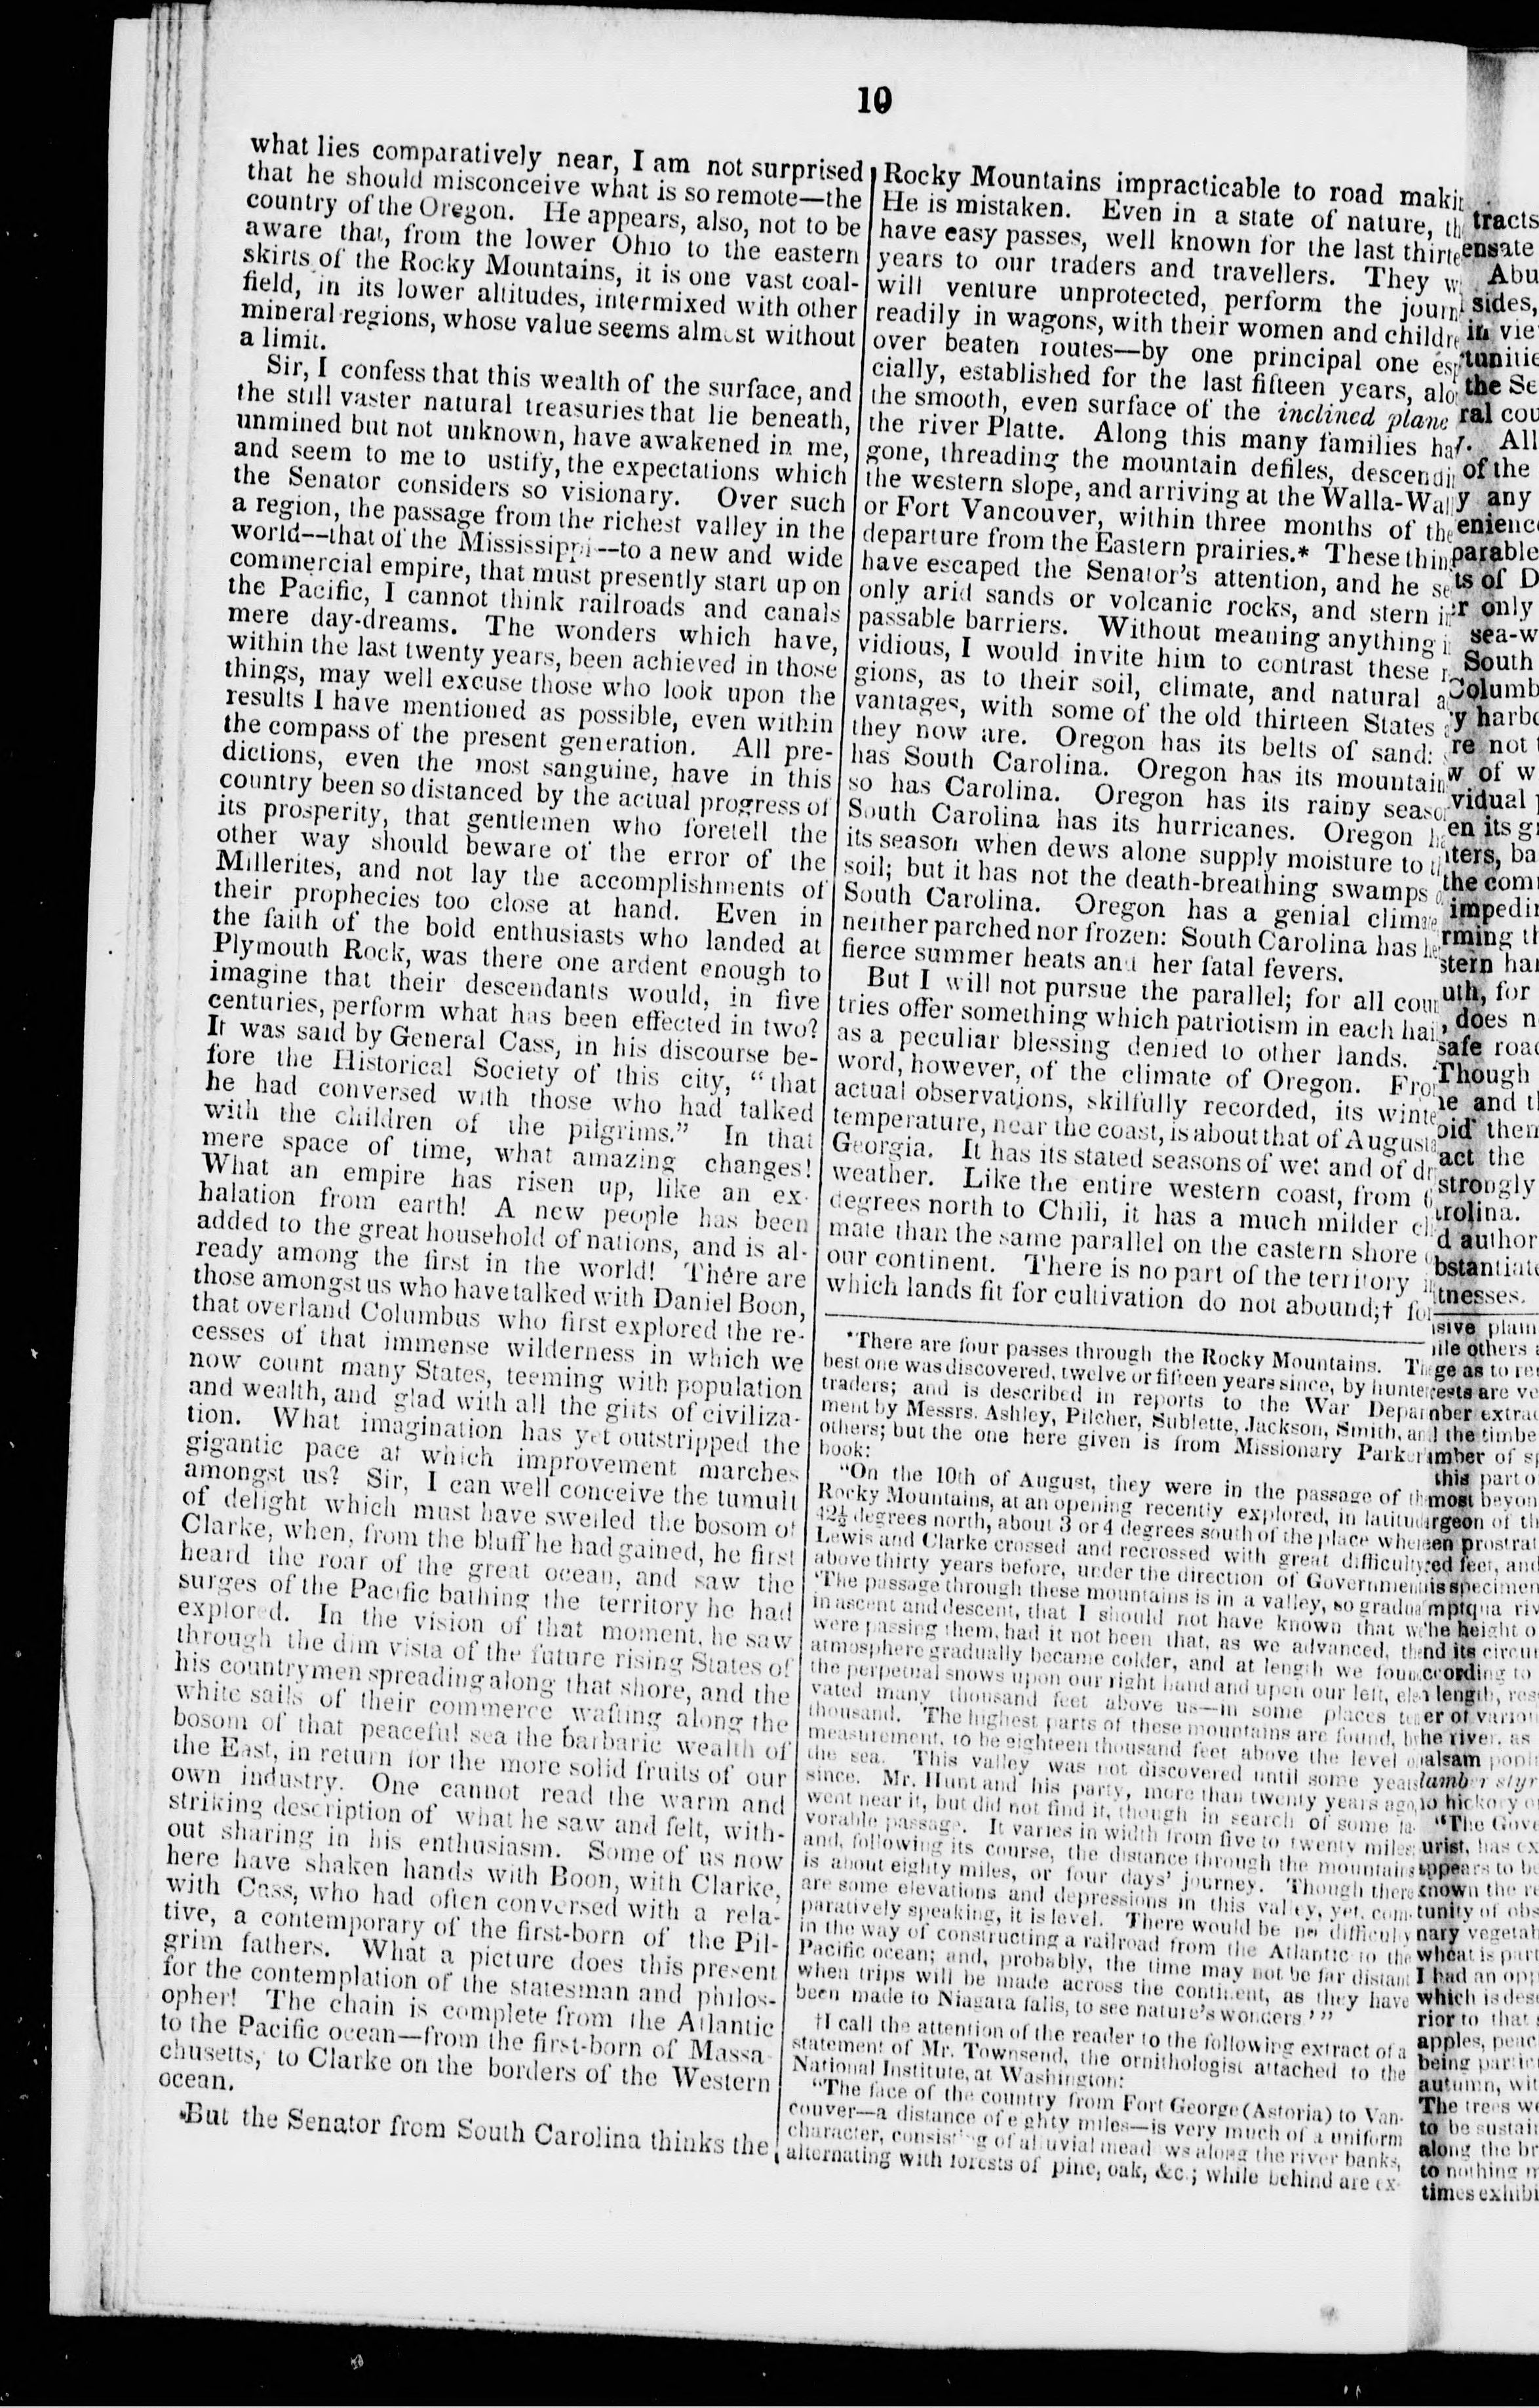 10
what lies comparatively near, I am not surprised
that he should misconceive what is so remote—the
country of the Oregon. He appears, also, not to be
aware that, from the lower Ohio to the eastern
skirts of the Rocky Mountains, it is one vast coal-
field, in its lower altitudes, intermixed with other
mineral regions, whose value seems almost without
a limit.
Sir, I confess that this wealth of the surface, and
the still vaster natural treasuries that lie beneath,
unmined but not unknown, have awakened in me,
and seem to me to ustify, the expectations which
the Senator considers so visionary. Over such
a region, the passage from the richest valley in the
world--that of the Mississippi--to a new and wide
commercial empire, that must presently start up on
the Pacific, I cannot think railroads and canals
mere day-dreams. The wonders which have,
within the last twenty years, been achieved in those
things, may well excuse those who look upon the
results I have mentioned as possible, even within
the compass of the present generation. All pre-
dictions, even the most sanguine, have in this
country been so distanced by the actual progress of
its prosperity, that gentlemen who foretell the
other way should beware of the error of the
Millerites, and not lay the accomplishments of
their prophecies too close at hand. Even in
the faith of the bold enthusiasts who landed at
Plymouth Rock, was there one ardent enough to
imagine that their descendants would, in five
centuries, perform what has been effected in two?
It was said by General Cass, in his discourse be-
fore the Historical Society of this city, "that
he had conversed with those who had talked
with the children of the pilgrims." In that
mere space of time, what amazing changes!
What an empire has risen up, like an ex-
halation from earth! A new people has been
added to the great household of nations, and is al-
ready among the first in the world! There are
those amongst us who have talked with Daniel Boon,
that overland Columbus who first explored the re-
cesses of that immense wilderness in which we
now count many States, teeming with population
and wealth, and glad with all the gifts of civiliza-
tion. What imagination has yet outstripped the
gigantic pace at which improvement marches
amongst us? Sir, I can well conceive the tumult
of delight which must have swelled the bosom of
Clarke, when, from the bluff he had gained, he first
heard the roar of the great ocean, and saw the
surges of the Pacific bathing the territory he had
explored. In the vision of that moment, he saw
through the dim vista of the future rising States of
his countrymen spreading along that shore, and the
white sails of their commerce wafting along the
bosom of that peaceful sea the barbaric wealth of
the East, in return for the more solid fruits of our
own industry. One cannot read the warm and
striking description of what he saw and felt, with-
out sharing in his enthusiasm. Some of us now
here have shaken hands with Boon, with Clarke,
with Cass, who had often conversed with a rela-
tive, a contemporary of the first-born of the Pil-
grim fathers. What a picture does this present
for the contemplation of the statesman and philos-
opher! The chain is complete from the Atlantic
to the Pacific ocean—from the first-born of Massa-
chusetts, to Clarke on the borders of the Western
ocean.
But the Senator from South Carolina thinks the
Rocky Mountains impracticable to road makin
He is mistaken. Even in a state of nature, th
have easy passes, well known for the last thirte
years to our traders and travellers. They w
will venture unprotected, perform the journ
readily in wagons, with their women and childre
over beaten routes—by one principal one esp
cially, established for the last fifteen years, alo
the smooth, even surface of the inclined plane
the river Platte. Along this many families ha
gone, threading the mountain defiles, descendin
the western slope, and arriving at the Walla-Wall
or Fort Vancouver, within three months of the
departure from the Eastern prairies.* These thing
have escaped the Senator's attention, and he se
only arid sands or volcanic rocks, and stern im
passable barriers. Without meaning anything i
vidious, I would invite him to contrast these r
gions, as to their soil, climate, and natural a
vantages, with some of the old thirteen States
they now are. Oregon has its belts of sand:
has South Carolina. Oregon has its mountain
so has Carolina. Oregon has its rainy seaso
South Carolina has its hurricanes. Oregon ha
its season when dews alone supply moisture to th
soil; but it has not the death-breathing swamps o
South Carolina. Oregon has a genial climate
neither parched nor frozen: South Carolina has he
fierce summer heats and her fatal fevers.
But I will not pursue the parallel; for all coun
tries offer something which patriotism in each hai
as a peculiar blessing denied to other lands.
word, however, of the climate of Oregon. Fro
actual observations, skilfully recorded, its winte
temperature, near the coast, is about that of Augusta
Georgia. It has its stated seasons of wet and of dr
weather. Like the entire western coast, from 6
degrees north to Chili, it has a much milder cli
mate than the same parallel on the eastern shore o
our continent. There is no part of the territory in
which lands fit for cultivation do not abound;† for
*There are four passes through the Rocky Mountains. The
best one was discovered, twelve or fifteen years since, by hunter
traders; and is described in reports to the War Depart
ment by Messrs. Ashley, Pilcher, Sublette, Jackson, Smith, and
others; but the one here given is from Missionary Parker
book:
"On the 10th of August, they were in the passage of the
Rocky Mountains, at an opening recently explored, in latitud
42½ degrees north, about 3 or 4 degrees south of the place where
Lewis and Clarke crossed and recrossed with great difficulty
above thirty years before, under the direction of Government
'The passage through these mountains is in a valley, so gradua
in ascent and descent, that I should not have known that we
were passing them, had it not been that, as we advanced, the
atmosphere gradually became colder, and at length we foun
the perpetual snows upon our right hand and upon our left, ele
vated many thousand feet above us—in some places ten
thousand. The highest parts of these mountains are found, by
measurement, to be eighteen thousand feet above the level o
the sea. This valley was not discovered until some years
since. Mr. Hunt and his party, more than twenty years ago,
went near it, but did not find it, though in search of some fa-
vorable passage. It varies in width from five to twenty miles;
and, following its course, the distance through the mountains
is about eighty miles, or four days' journey. Though there
are some elevations and depressions in this valley, yet, com-
paratively speaking, it is level. There would be no difficulty
in the way of constructing a railroad from the Atlantic to the
Pacific ocean; and, probably, the time may not be far distant
when trips will be made across the continent, as they have
been made to Niagara falls, to see nature's wonders.'"
†I call the attention of the reader to the following extract of a
statement of Mr. Townsend, the ornithologist attached to the
National Institute, at Washington:
"The face of the country from Fort George (Astoria) to Van-
couver—a distance of e ghty miles—is very much of a uniform
character, consisting of alluvial mead ws along the river banks,
alternating with forests of pine, oak, &c.; while behind are ex-
tracts
ensate
Abu
sides,
in vie
tunitie
the Se
ral cou
All
of the
y any
enienc
parable
ts of D
r only
sea-w
South
Columb
y harbo
re not
w of w
vidual
en its g
ters, ba
the com
impedi
rming th
stern ha
uth, for
, does n
safe road
Though
ne and t
oid then
act the
strongly
rolina.
d author
bstantiate
tnesses.
sive plain
ile others
ge as to re
ests are ve
nber extra
the timbe
mber of s
this part o
most beyon
rgeon of th
en prostrat
red feet, and
is specimen
mptqua riv
he height o
nd its circu
ccording to
length, res
er of variou
he river, as
alsam popl
lumber styr
no hickory o
"The Gove
urist, has ex
appears to be
known the re
tunity of obs
nary vegetab
wheat is part
I had an opp
which is des
rior to that
apples, peac
being partic
autumn, wit
The trees we
to be sustain
along the br
to nothing m
times exhibi